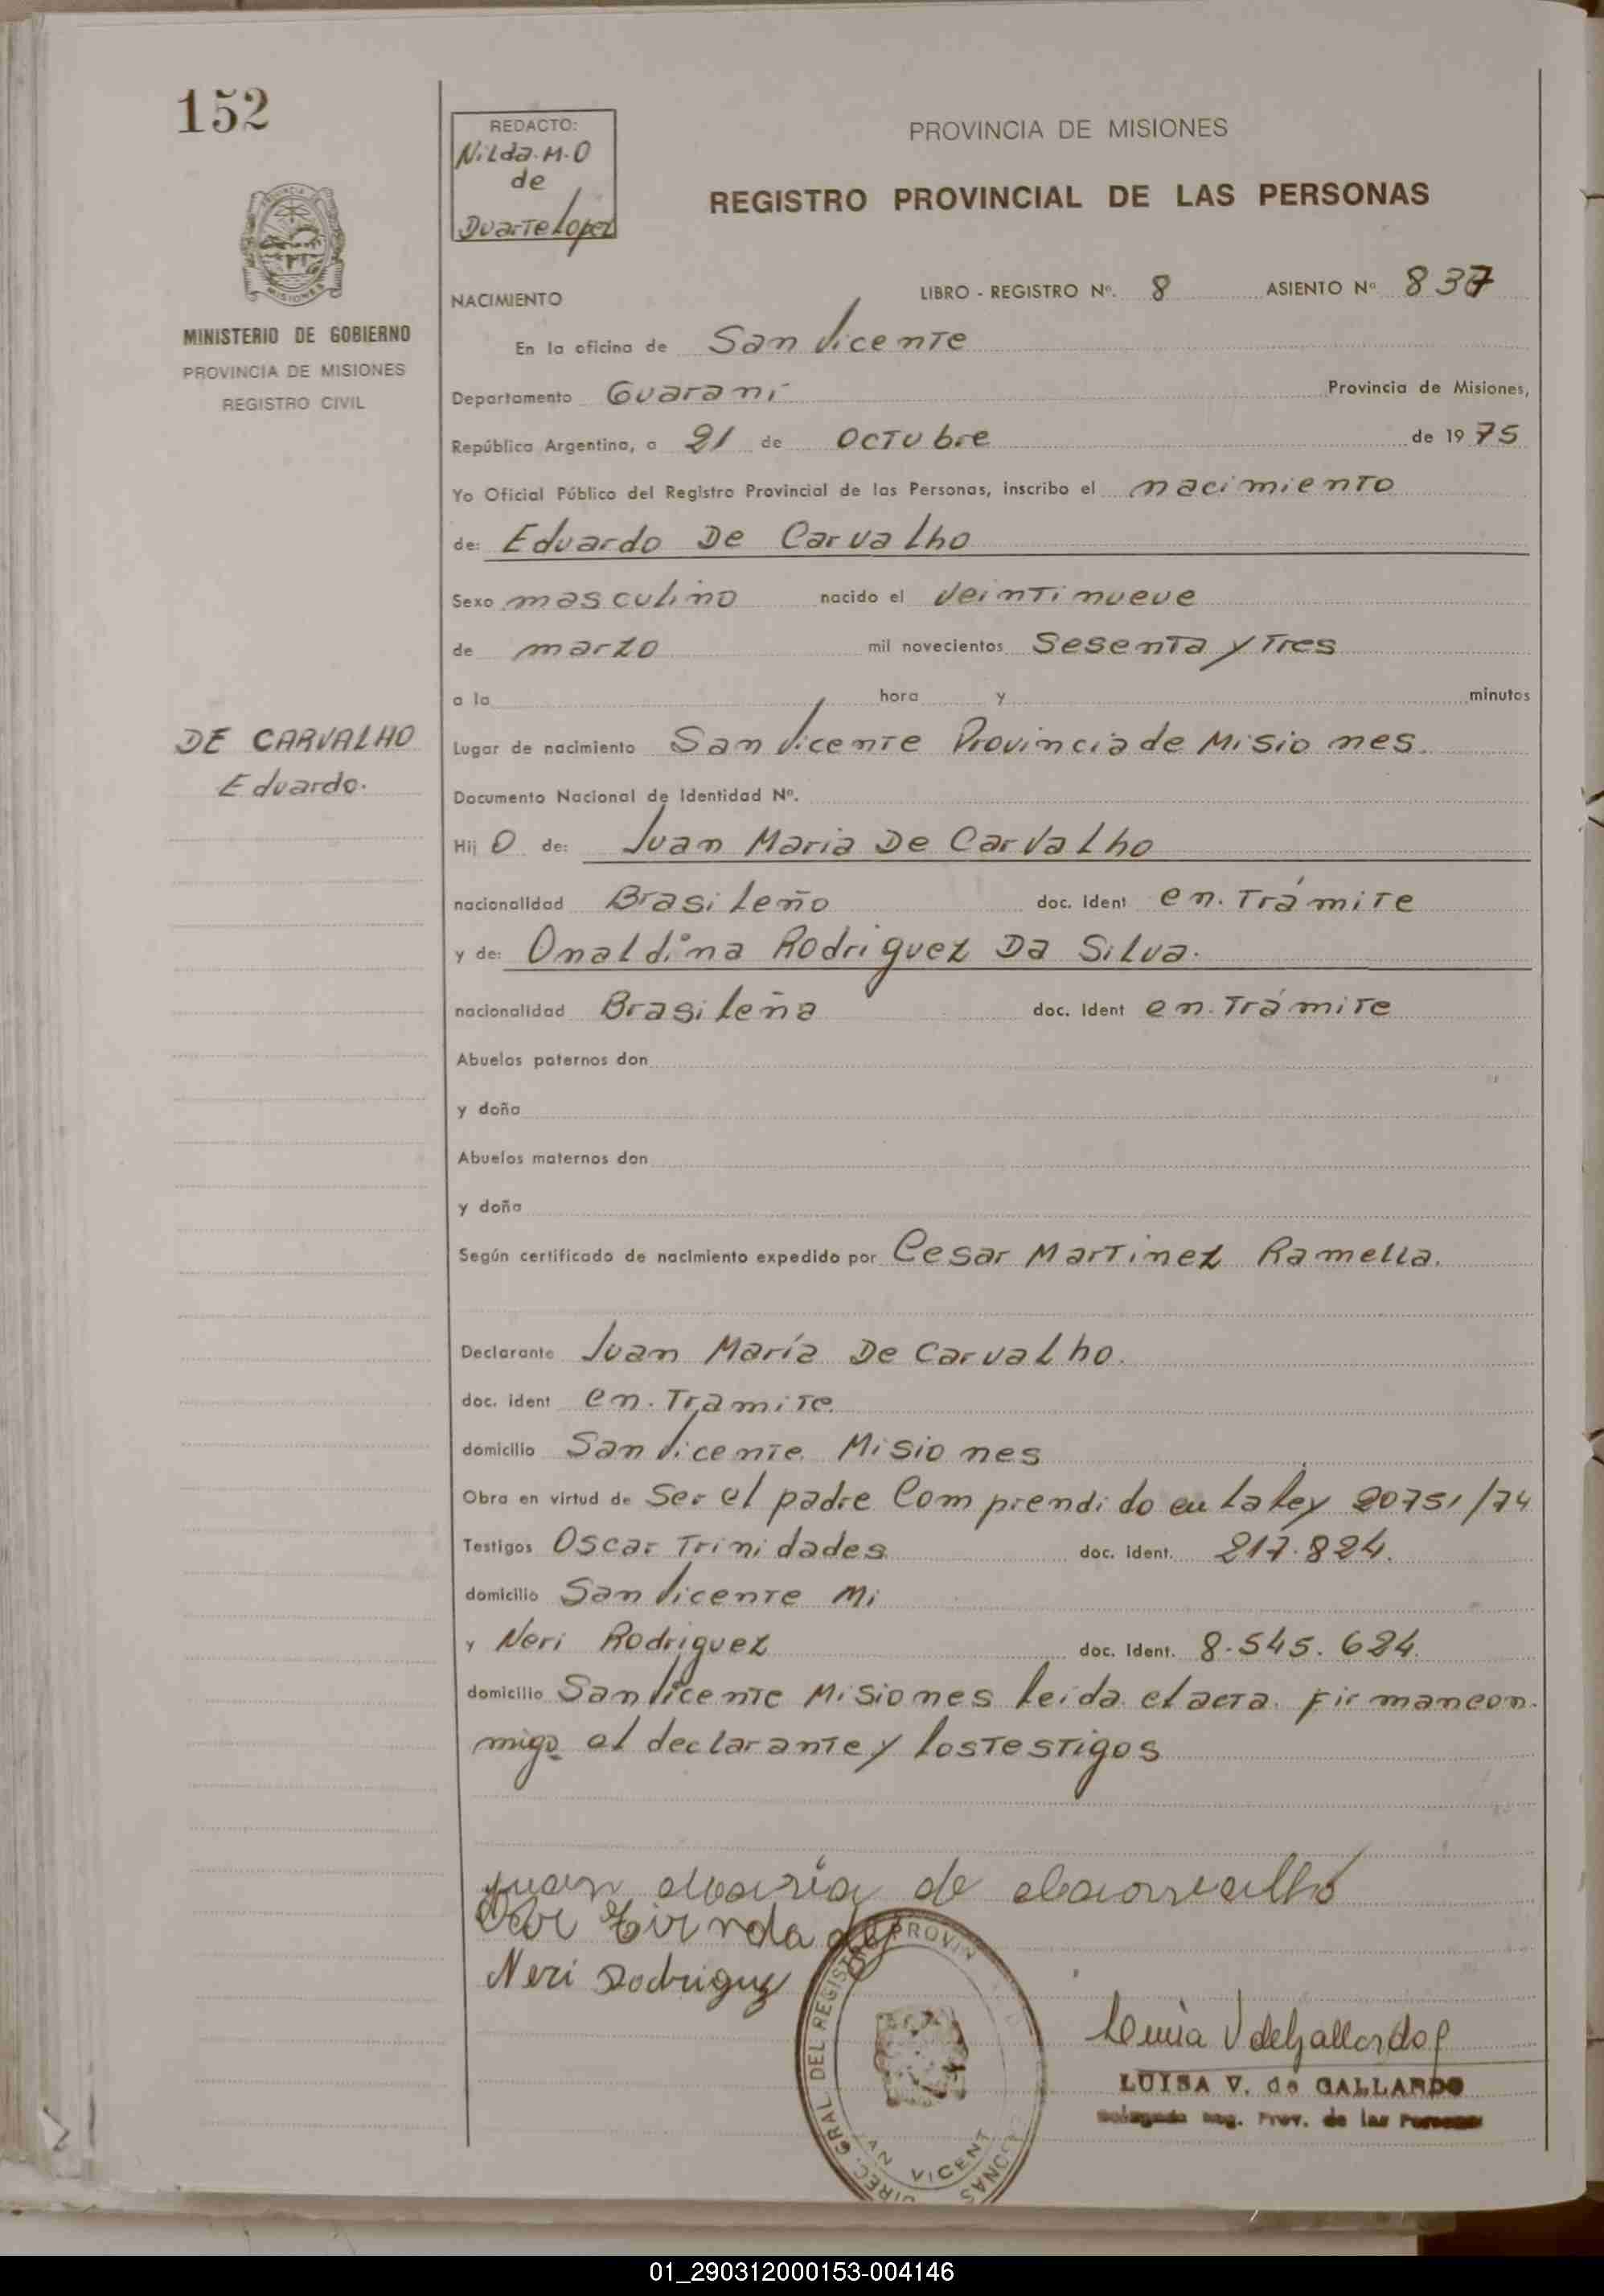 152
REDACTO:
Nilda. M. O
de
Duarte Lopez
PROVINCIA DE MISIONES
REGISTRO PROVINCIAL DE LAS PERSONAS
NACIMIENTO
LIBRO - REGISTRO Nº. 8 ASIENTO Nº 837
MINISTERIO DE GOBIERNO
PROVINCIA DE MISIONES
REGISTRO CIVIL
En la oficina de San Vicente
Departamento Guaraní Provincia de Misiones,
República Argentina, a 21 de Octubre de 1975
Yo Oficial Público del Registro Provincial de las Personas, inscribo el nacimiento
de: Eduardo De Carvalho
Sexo masculino nacido el veintinueve
de marzo mil novecientos Sesenta y Tres
a la hora y minutos
DE CARVALHO
Eduardo.
Lugar de nacimiento San Vicente Provincia de Misiones.
Documento Nacional de Identidad Nº.
Hij O de: Juan Maria De Carvalho
nacionalidad Brasileño doc. ident en. Trámite
y de: Onaldina Rodriguez Da Silva.
nacionalidad Brasileña doc. ident en. Trámite
Abuelos paternos don
y doña
Abuelos maternos don
y doña
Según certificado de nacimiento expedido por Cesar Martinez Ramella.
Declarante Juan María De Carvalho.
doc. ident en. Tramite
domicilio San Vicente Misiones
Obra en virtud de Ser el padre Comprendido en la Ley 20751/74
Testigos Oscar Trinidades doc. ident. 217.824.
domicilio San Vicente Mi
y Neri Rodriguez doc. ident. 8.545.624.
domicilio San Vicente Misiones leida el acta. Firman con.
migo el declarante y los Testigos
Juan María de
Neri Rodriguez
DIREC. GRAL DEL REGISTRO PROVIN
VICENT
Luisa V de Gallardo
LUISA V. de GALLARDO
Delegada Reg. Prov. de las Personas
01_290312000153-004146